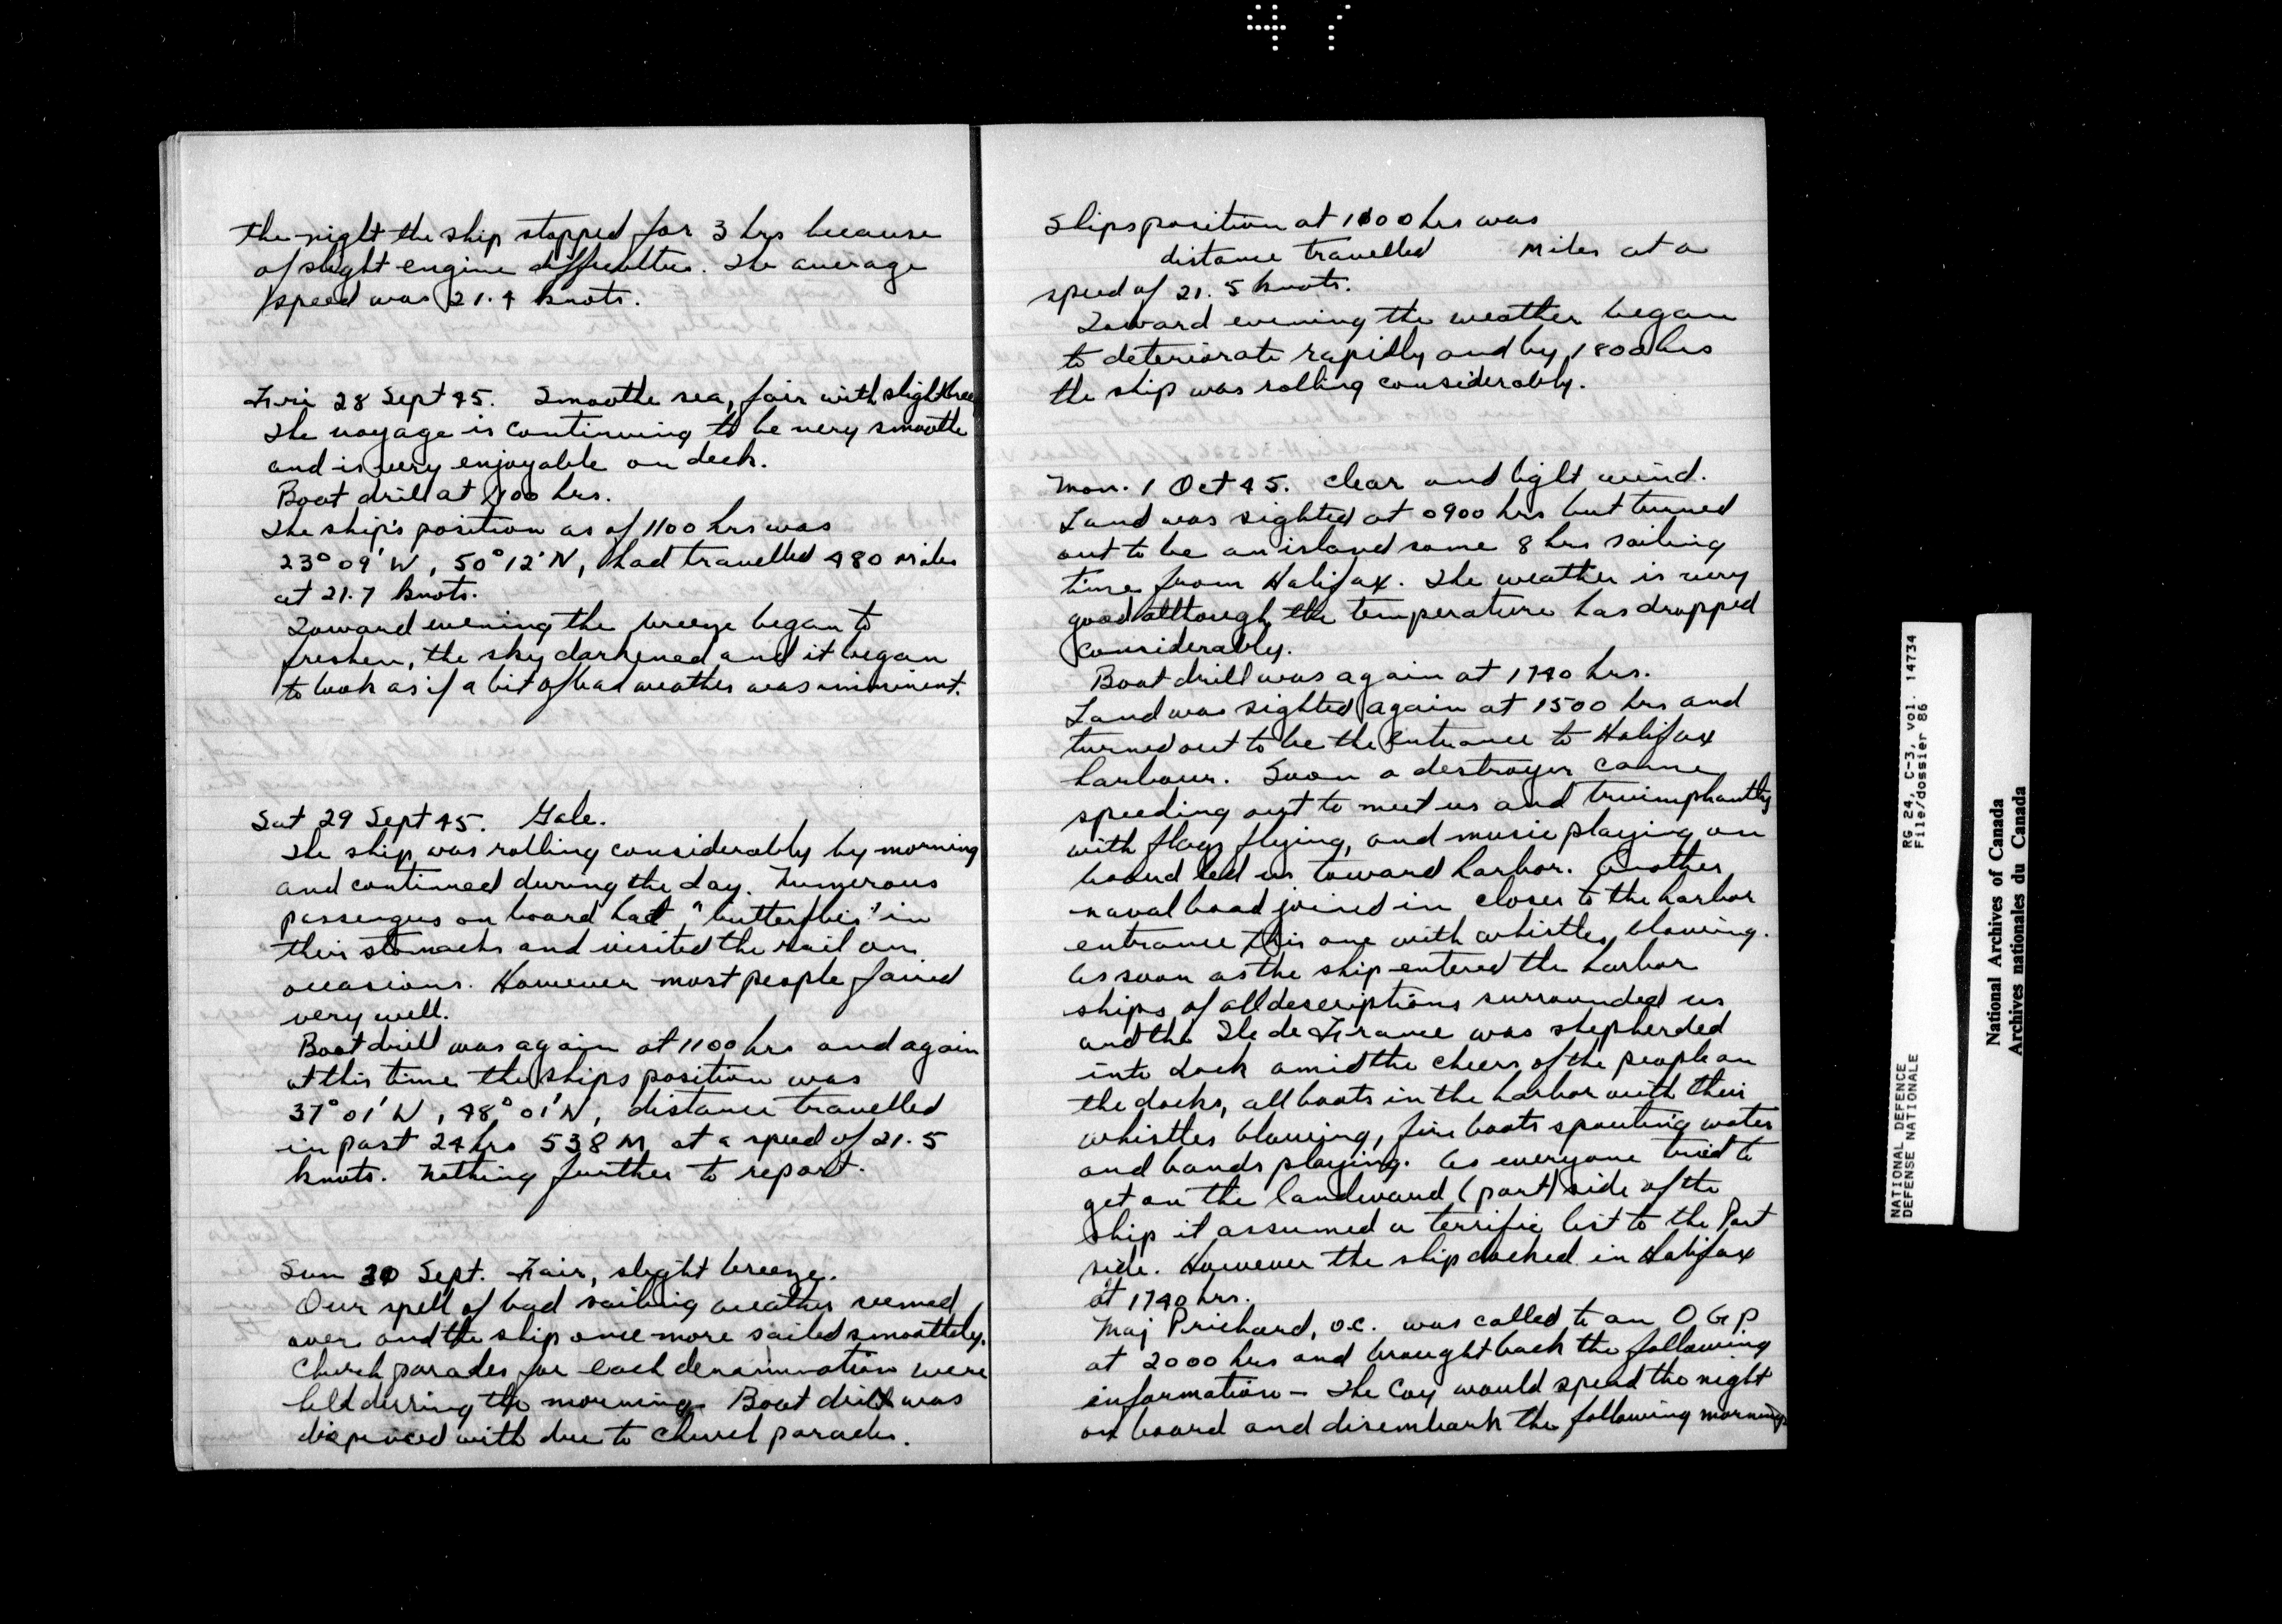 47
the night the ship stopped for 3 hrs because
of slight engine difficulties. The average
speed was 21.4 knots.
Fri 28 Sept 45. Smoothe sea, fair with slight breeze
The voyage is continuing to be very smoothe
and is very enjoyable on deck.
Boat drill at 1100 hrs.
The ship's position as of 1100 hrs was
23° 09' W, 50° 12' N, had travelled 480 miles
at 21.7 knots.
Toward evening the breeze began to
freshen, the sky darkened and it began
to look as if a bit of bad weather was imminent.
Sat 29 Sept 45. Gale.
The ship was rolling considerably by morning
and continued during the day. Numerous
passengers on board had "butterflies" in
their stomachs and visited the rail on
occasions. However most people faired
very well.
Boat drill was again at 1100 hrs and again
at this time the ships position was
37° 01' W, 48° 01' N, distance travelled
in past 24 hrs 538 M at a speed of 21.5
knots. Nothing further to report.
Sun 30 Sept. Fair, slight breeze.
Our spell of bad sailing weather seemed
over and the ship once more sailed smoothely.
Church parades for each denomination were
held during the morning. Boat drill was
dispenced with due to Church parades.
Ships position at 1100 hrs was
distance travelled miles at a
speed of 21.5 knots.
Toward evening the weather began
to deteriorate rapidly and by 1800 hrs
the ship was rolling considerably.
Mon. 1 Oct 45. Clear and light wind.
Land was sighted at 0900 hrs but turned
out to be an island some 8 hrs sailing
time from Halifax. The weather is very
good although the temperature has dropped
considerably.
Boat drill was again at 1740 hrs.
Land was sighted again at 1500 hrs and
turned out to be the entrance to Halifax
harbour. Soon a destroyer came
speeding out to meet us and truimphantly
with flags flying, and music playing on
board led us toward harbor. Another
naval boad joined in closer to the harbor
entrance this one with whistles blowing.
As soon as the ship entered the harbor
ships of all descriptions surrounded us
and the Ile de France was shepherded
into dock amid the cheers of the people on
the docks, all boats in the harbor with their
whistles blowing, fire boats spouting water
and bands playing. As everyone tried to
get on the landward (port) side of the
ship it assumed a terrific list to the Port
side. However the ship docked in Halifax
at 1740 hrs.
Maj Prichard, o.c. was called to an O G P
at 2000 hrs and brought back the following
information - The Coy would spend the night
on board and disembark the following morning
NATIONAL DEFENCE RG 24, C-3, vol. 14734
DEFENSE NATIONALE File/dossier 86
National Archives of Canada
Archives nationales du Canada